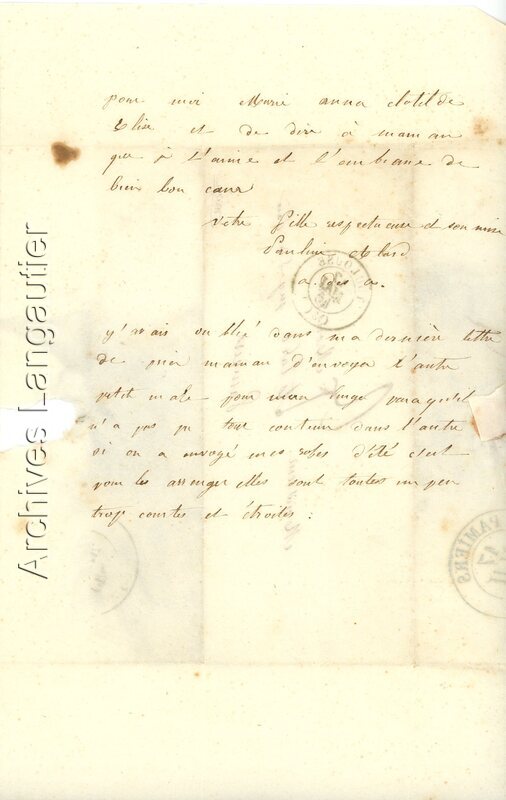 pour moi Marie anna clotilde
Elise et de dire à maman
que je l'aime et l'embrasse de
bien bon cœur
votre fille respectueuse et soumise
Pauline Abard
a. des a.
j'avais oublié dans ma dernière lettre
de prier maman d'envoyer l'autre
petit male pour mon linge paraquil
n'a pas pu tout contenir dans l'autre
si on a envoyé mes robes d'été c'est
pour les arranger elles sont toutes un peu
trop courtes et étroites :
TOULOUSE
PAMIERS
17
Archives Langautier